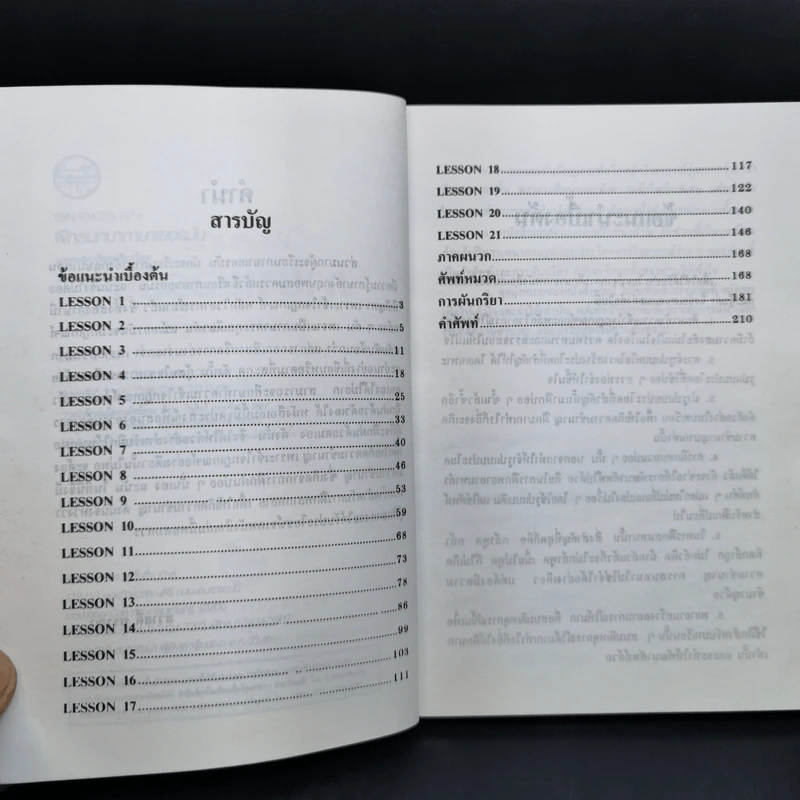 สารบัญ
ข้อแนะนำเบื้องต้น
LESSON 1 3
LESSON 2 5
LESSON 3 11
LESSON 4 18
LESSON 5 25
LESSON 6 33
LESSON 7 40
LESSON 8 46
LESSON 9 53
LESSON 10 59
LESSON 11 68
LESSON 12 73
LESSON 13 78
LESSON 14 86
LESSON 15 99
LESSON 16 103
LESSON 17 111
LESSON 18 117
LESSON 19 122
LESSON 20 140
LESSON 21 146
ภาคผนวก 168
ศัพท์หมวด 168
การผันกริยา 181
คำศัพท์ 210